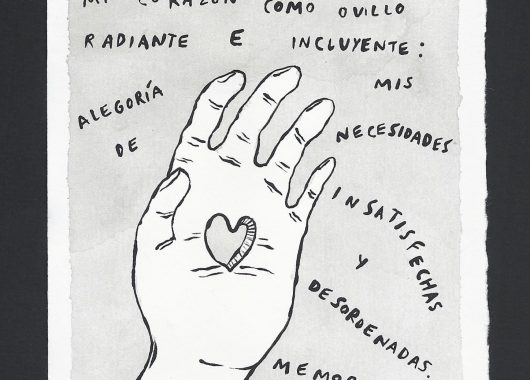 MI CORAZÓN COMO OVILLO
RADIANTE E INCLUYENTE:
ALEGORÍA
DE
MIS
NECESIDADES
INSATISFECHAS
Y
DESORDENADAS.